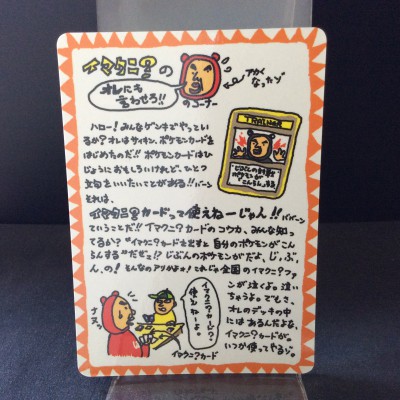 イマクニ?の
オレにも
言わせろ!!
のコーナー
アカく
なったゾ
ハロー!みんなゲンキでやってい
るか?オレはサイキン、ポケモンカードを
はじめたのだ!!ポケモンカードはひ
じょうにおもしろいけれど、ひとつ
文句をいいたいことがある!!バーン
それは、
イマクニ?カードって使えねーじゃん!!ババーン
ていうことだ!!イマクニ?カードのコウカ、みんな知っ
てるか?"イマクニ?カードを出すと自分のポケモンがこん
らんする"だぞ!?じぶんのポケモンがだよ、じ、ぶ、
ん、の!そんなのアリかよ!これじゃ全国のイマクニ?ファ
ンが泣くよ。泣い
ちゃうよ。でもさ、
オレのデッキの中
にはあるんだよな、
イマクニ?カードが。
いつか使ってやるゾ。
TRAINER
じぶんの
ポケモンが
こんらん
イマクニ?カード?
使えねーよ。
イマクニ?カード